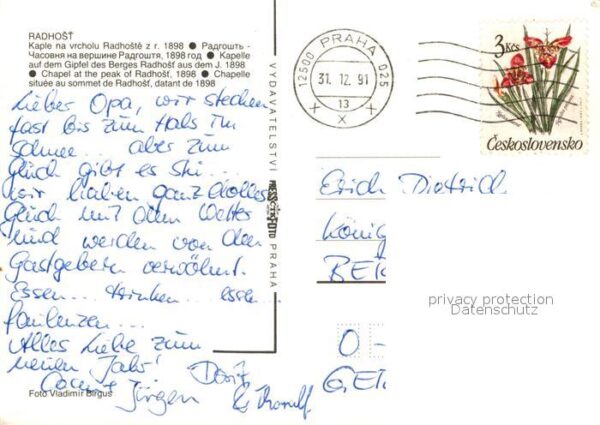 RADHOŠŤ
Kaple na vrcholu Radhoště z r. 1898 ● Радгошть -
Часовня на вершине Радгоштя, 1898 год ● Kapelle
auf dem Gipfel des Berges Radhošť aus dem J. 1898
● Chapel at the peak of Radhošť, 1898 ● Chapelle
située au sommet de Radhošť, datant de 1898
Lieber Opa, wir stecken
fast bis zum Hals im
Schnee... aber zum
Glück gibt es Ski...
wir haben ganz dolles
Glück mit dem Wetter
und werden von den
Gastgebern verwöhnt.
Essen... trinken... essen
faulenzen...
Alles Liebe zum
neuen Jahr!
Dorit
Jürgen
&
Foto Vladimír Birgus
VYDAVATELSTVÍ
PRESSFOTO
PRAHA
12500 PRAHA 025
31. 12. 91
13
X X X
3 Kčs
Československo
Erich Dietrich
König
BEI
privacy protection
Datenschutz
O -
GEI